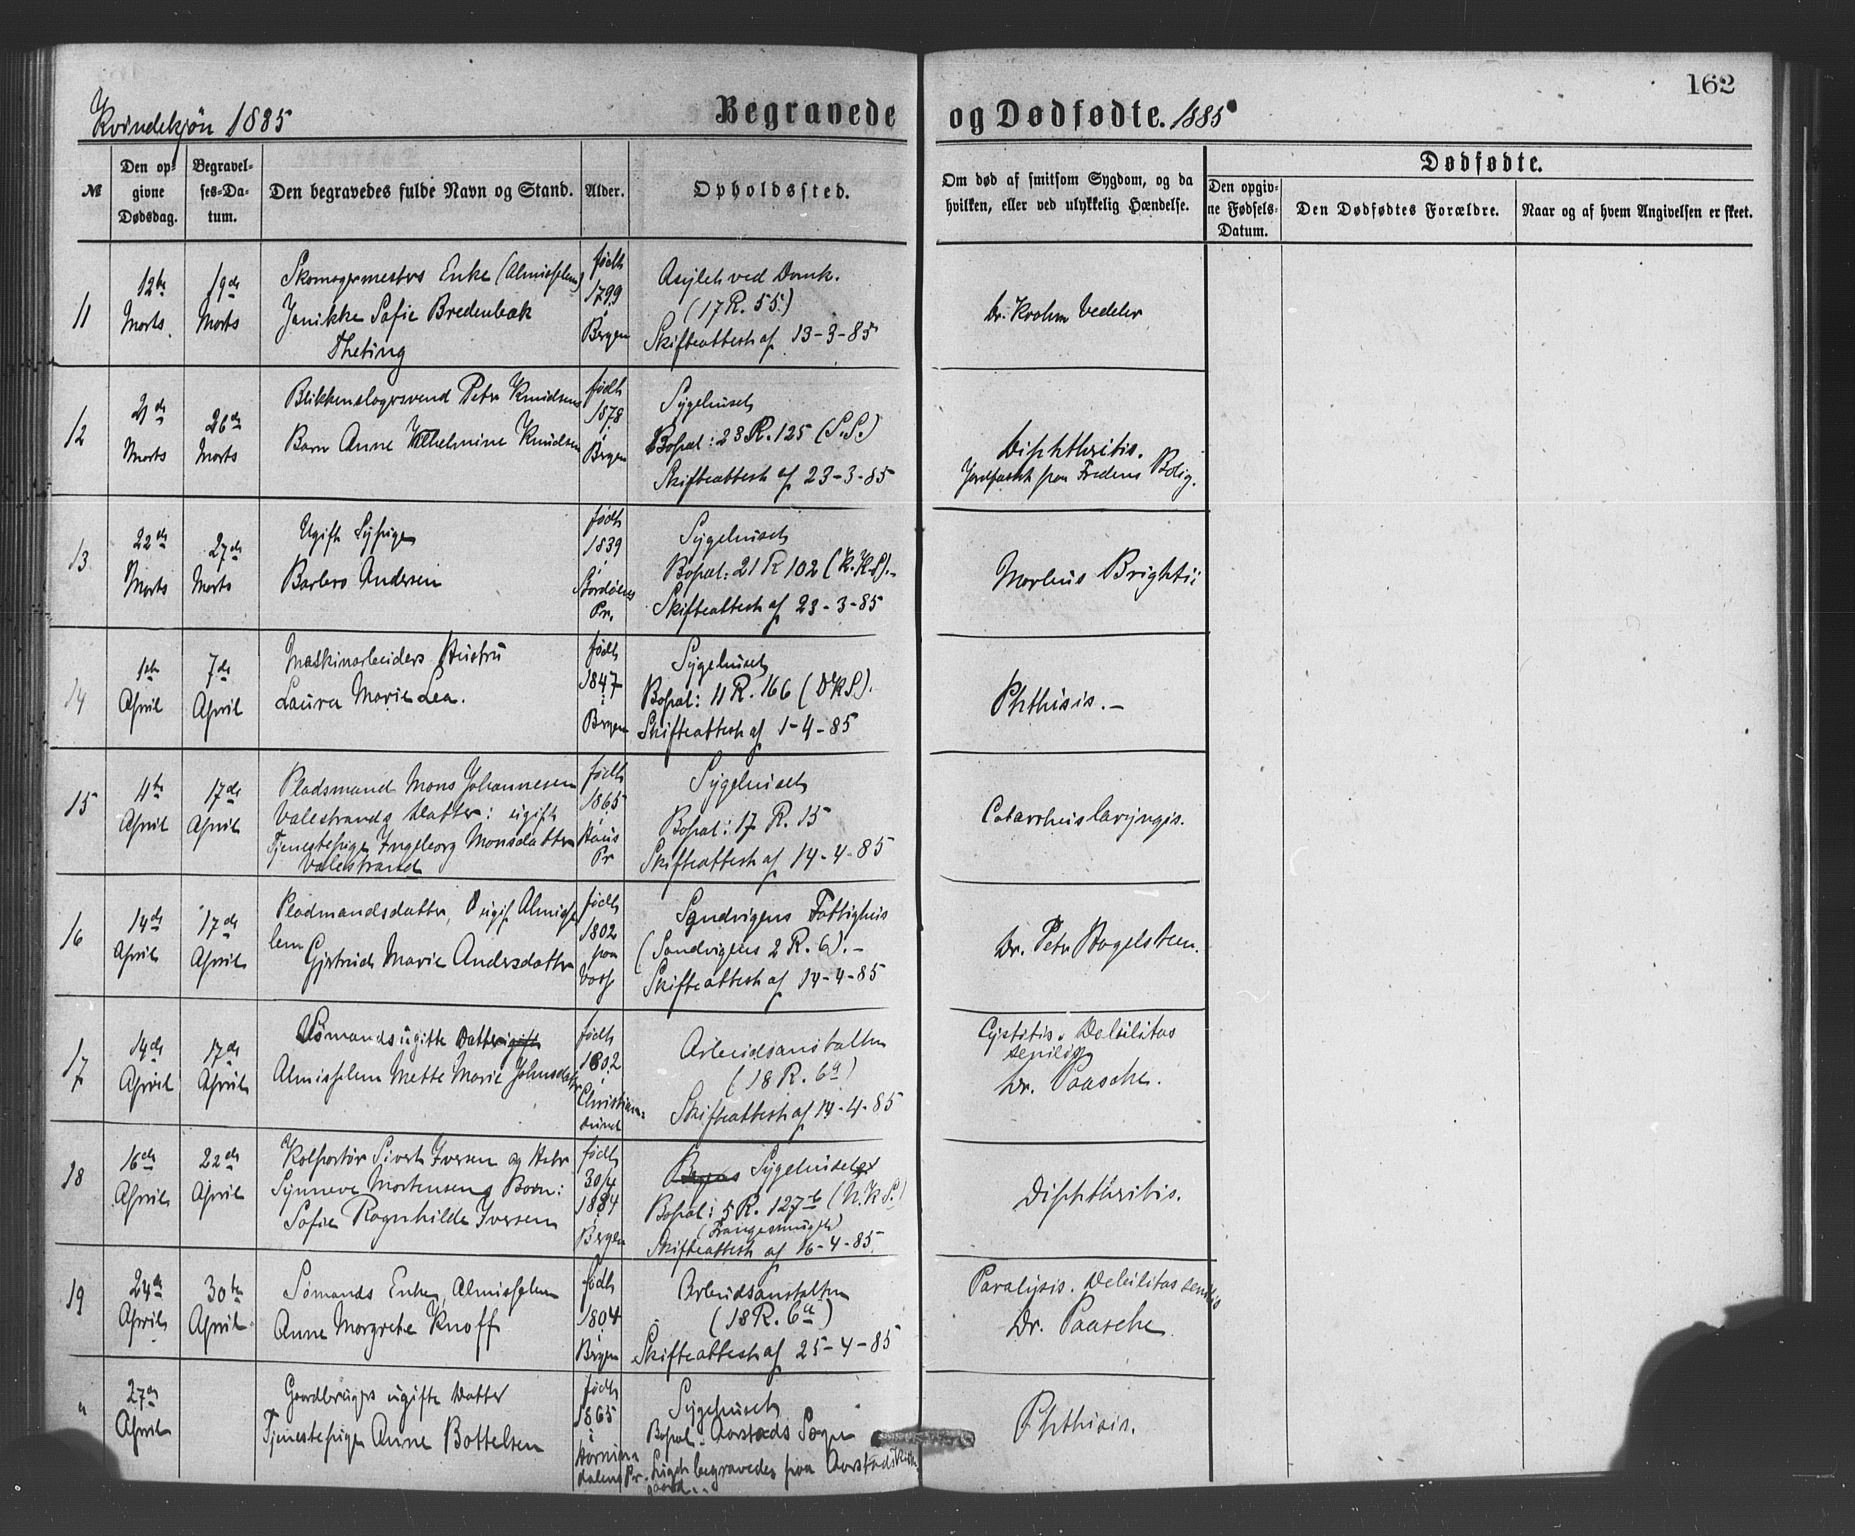 162
Kvindekjøn 1885
Begravede og Dødfødte. 1885
№
Den opgivne Dødsdag.
Begravelses-Datum.
Den begravedes fulde Navn og Stand.
Alder.
Opholdssted.
Om død af smitsom Sygdom, og da hvilken, eller ved ulykkelig Hændelse.
Dødfødte.
Den opgivne Fødsels-Datum.
Den Dødfødtes Forældre.
Naar og af hvem Angivelsen er skeet.
11
12te Marts.
19de Marts
Skomagermesters Enke (Almisselem)
Janikke Sofie Bredenbæk
Theting
født 1799 i Bergen
Asylet ved Domk.
(17 R. 55.)
Skifteattest af 13-3-85
Dr. Krohn Vedeler
12
21de Marts
26de Marts
Blikkenslagersvend Peter Knudsens
Barn Anne Wilhelmine Knudsen
født 1878 i Bergen
Sygehuset
Bopæl: 23 R. 125 (S.S.)
Skifteattest af 23-3-85
Diphtheritis.
Jordfæstet fra Fredens Bolig.
13
22de Marts
27de Marts
Ugift Sypige
Barbro Andersen
født 1839 i Pr.
Sygehuset
Bopæl: 21 R 102 (K.K.S).-
Skifteattest af 23-3-85
Morbus Brightii
14
1ste April
7de April
Maskinarbeiders Hustru
Laura Marie Lea.
født 1847 i Bergen
Sygehuset
Bopæl: 11 R. 166 (DKS).
Skifteattest af 1-4-85
Phthisis.-
15
11te April
17de April
Pladsmand Mons Johannesen
Valestrands Datter: ugift
Tjenestepige Ingeborg Monsdatter
Valestrand
født 1865 i Haus Pr
Sygehuset
Bopæl: 17 R. 15
Skifteattest af 14-4-85
Catarrhus laryngis.
16
14de April
17de April
Pladmandsdatter, ugift Almisselem
Gjertrud Marie Andersdatter
født 1802 paa Voss
Sandvigens Fattighus
(Sandvigens 2 R. 6).-
Skifteattest af 14-4-85
Dr. Peter Hagelsteen.
17
14de April
17de April
Sømands ugifte Datter ugift
Almisselem Mette Marie Johnsdatter
født 1802 i Christiansund
Arbeidsanstalten
(18 R. 6a)
Skifteattest af 14-4-85
Cystitis. Debilitas senilis
Dr. Paasche.
18
16de April
22de April
Kolportør Sivert Iversen og Hstr
Synneve Mortensens Barn:
Sofie Ragnhilde Iversen
født 30/4 1884 i Bergen
Sygehuset
Bopæl: 5 R. 127b (N.K.S.)
Skifteattest af 16-4-85
Diphtheritis.
19
24de April
30te April
Sømands Enke, Almisselem
Anne Margrete Knoff
født 1804 i Bergen
Arbeidsanstalten
(18 R. 6a)
Skifteattest af 25-4-85
Paralysis. Debilitas senilis
Dr. Paasche
"
27de April
Gaardbrugers ugifte Datter
Tjenestepige Anne Bottelsen
født 1865 i Hornindalens Pr.
Sygehuset
Bopæl. Aarstads Sogn
Liget begravedes paa Aarstads Kirkegaard..
Phthisis.